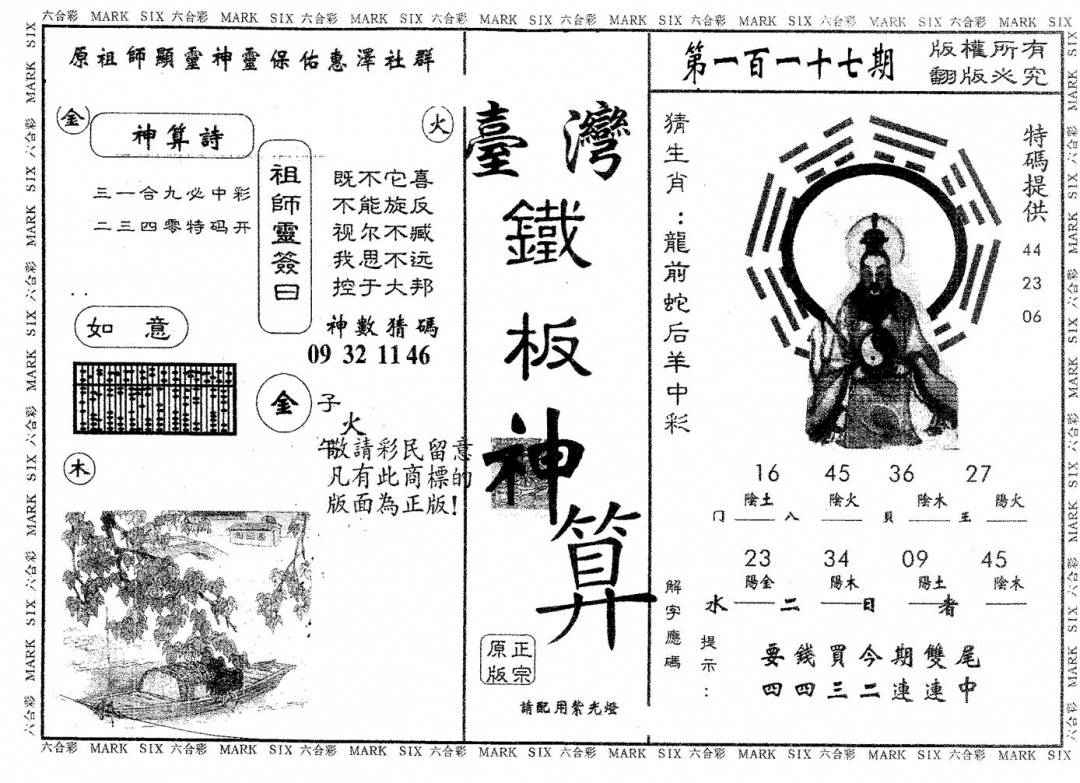 六合彩 MARK SIX 六合彩 MARK SIX 六合彩 MARK SIX 六合彩 MARK SIX 六合彩 MARK SIX 六合彩 MARK SIX 六合彩 MARK SIX 六合彩 MARK SIX
原祖師顯靈神靈保佑惠澤社群
金
神算詩
火
三一合九必中彩
二三四零特码开
祖師靈簽曰
既不它喜
不能旋反
视尔不臧
我思不远
控于大邦
神數猜碼
09 32 11 46
如意
金
子
火
午
敬請彩民留意
凡有此商標的
版面為正版!
木
臺灣
鐵板神算
正宗
原版
請配用紫光燈
第一百一十七期
版權所有
翻版必究
猜生肖:龍前蛇后羊中彩
特碼提供
44
23
06
16 45 36 27
陰土 陰火 陰木 陽火
门 八 貝 王
23 34 09 45
陽金 陽木 陽土 陰水
水 二 日 者
解字應碼
提示:
要錢買今期雙尾
四四三二連連中
六合彩 MARK SIX 六合彩 MARK SIX 六合彩 MARK SIX 六合彩 MARK SIX 六合彩 MARK SIX 六合彩 MARK SIX 六合彩 MARK SIX 六合彩 MARK SIX